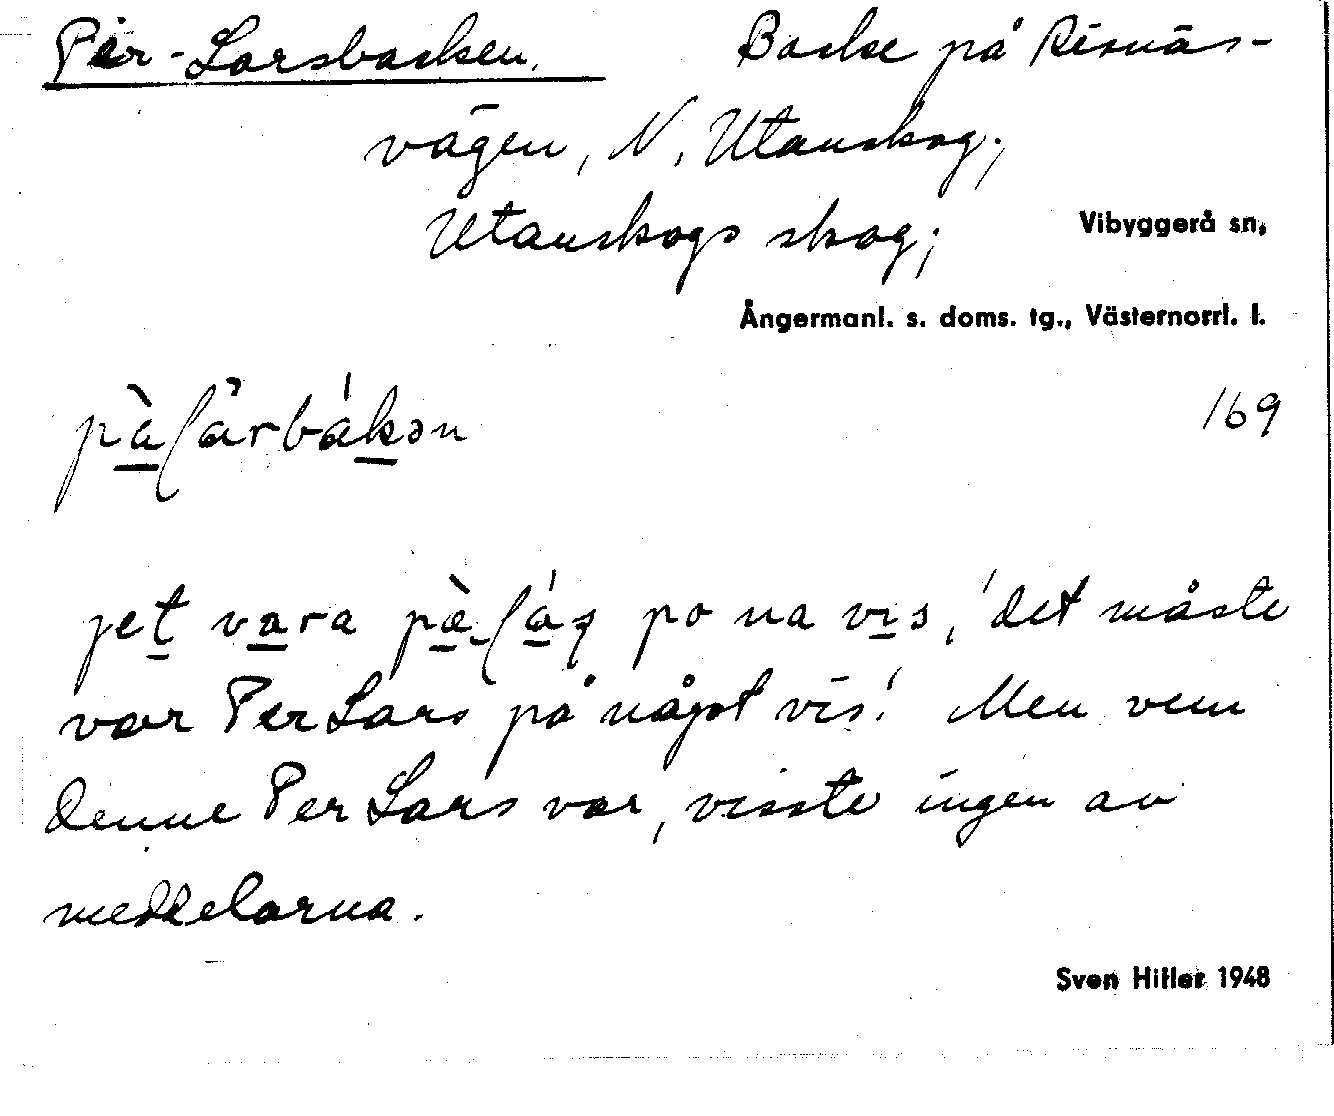 Per-Larsbacken. Backe på Risnäs-
vägen, N. Utanskog;
Utanskogs skog; Vibyggerå sn,
Ångermanl. s. doms. tg., Västernorrl. l.
169
vara po na vis, 'det måste
var Per Lars på något vis'. Men vem
denne Per Lars var, visste ingen av
meddelarna.
Sven Hitler 1948